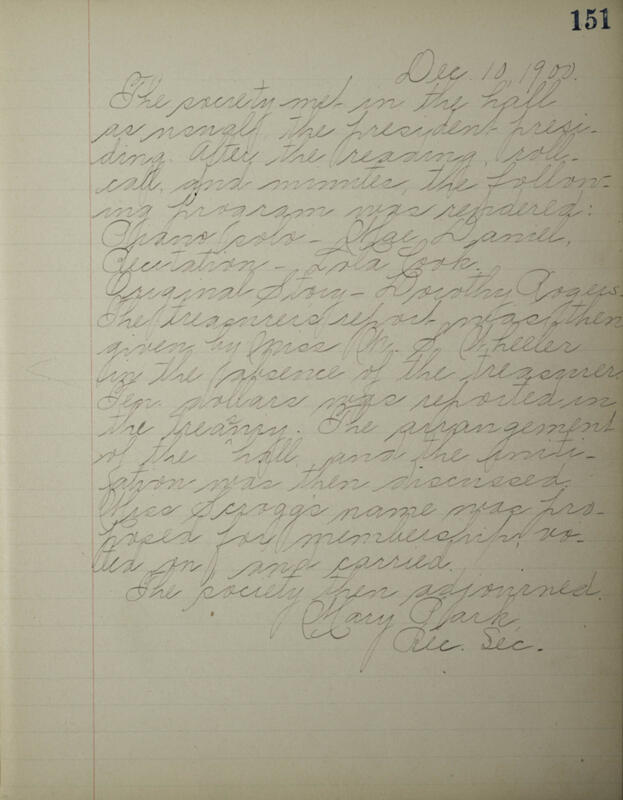 151
Dec. 10, 1900.
The society met in the hall
as usual, the president presi-
ding. After the reading, roll-
call, and minutes, the follow-
ing program was rendered:
Piano solo - Mae Daniel.
Recitation - Lola Cook.
Original Story - Dorothy Rogers.
The treasurers report was then
given by Miss M. S. Wheeler
in the absence of the treasurer.
Ten dollars was reported in
the treasury. The arrangement
of the hall and the initi-
ation was then discussed.
Miss Scroggs name was pro-
posed for membership, vo-
ted on, and carried.
The society then adjourned.
Mary Clark,
Rec. Sec.